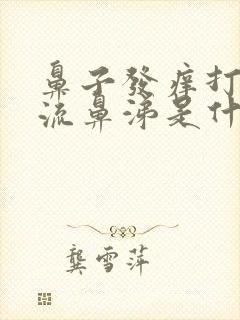 鼻子發癢打
流鼻涕是什
龔雪萍